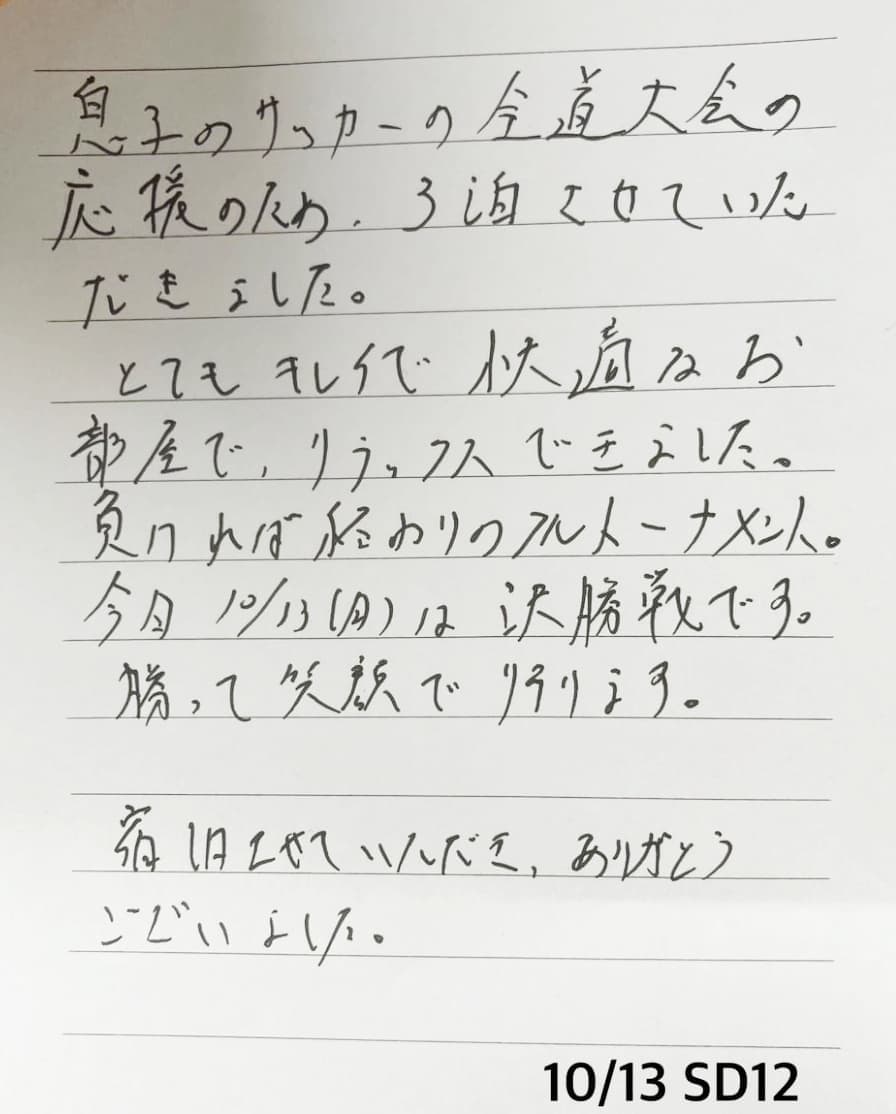 息子のサッカーの全道大会の
応援のため、3泊させていた
だきました。
とてもキレイで快適なお
部屋で、リラックスできました。
負ければ終わりのフルトーナメント。
今日10/13(月)は決勝戦です。
勝って笑顔で帰ります。
宿泊させていただき、ありがとう
ございました。
10/13 SD12